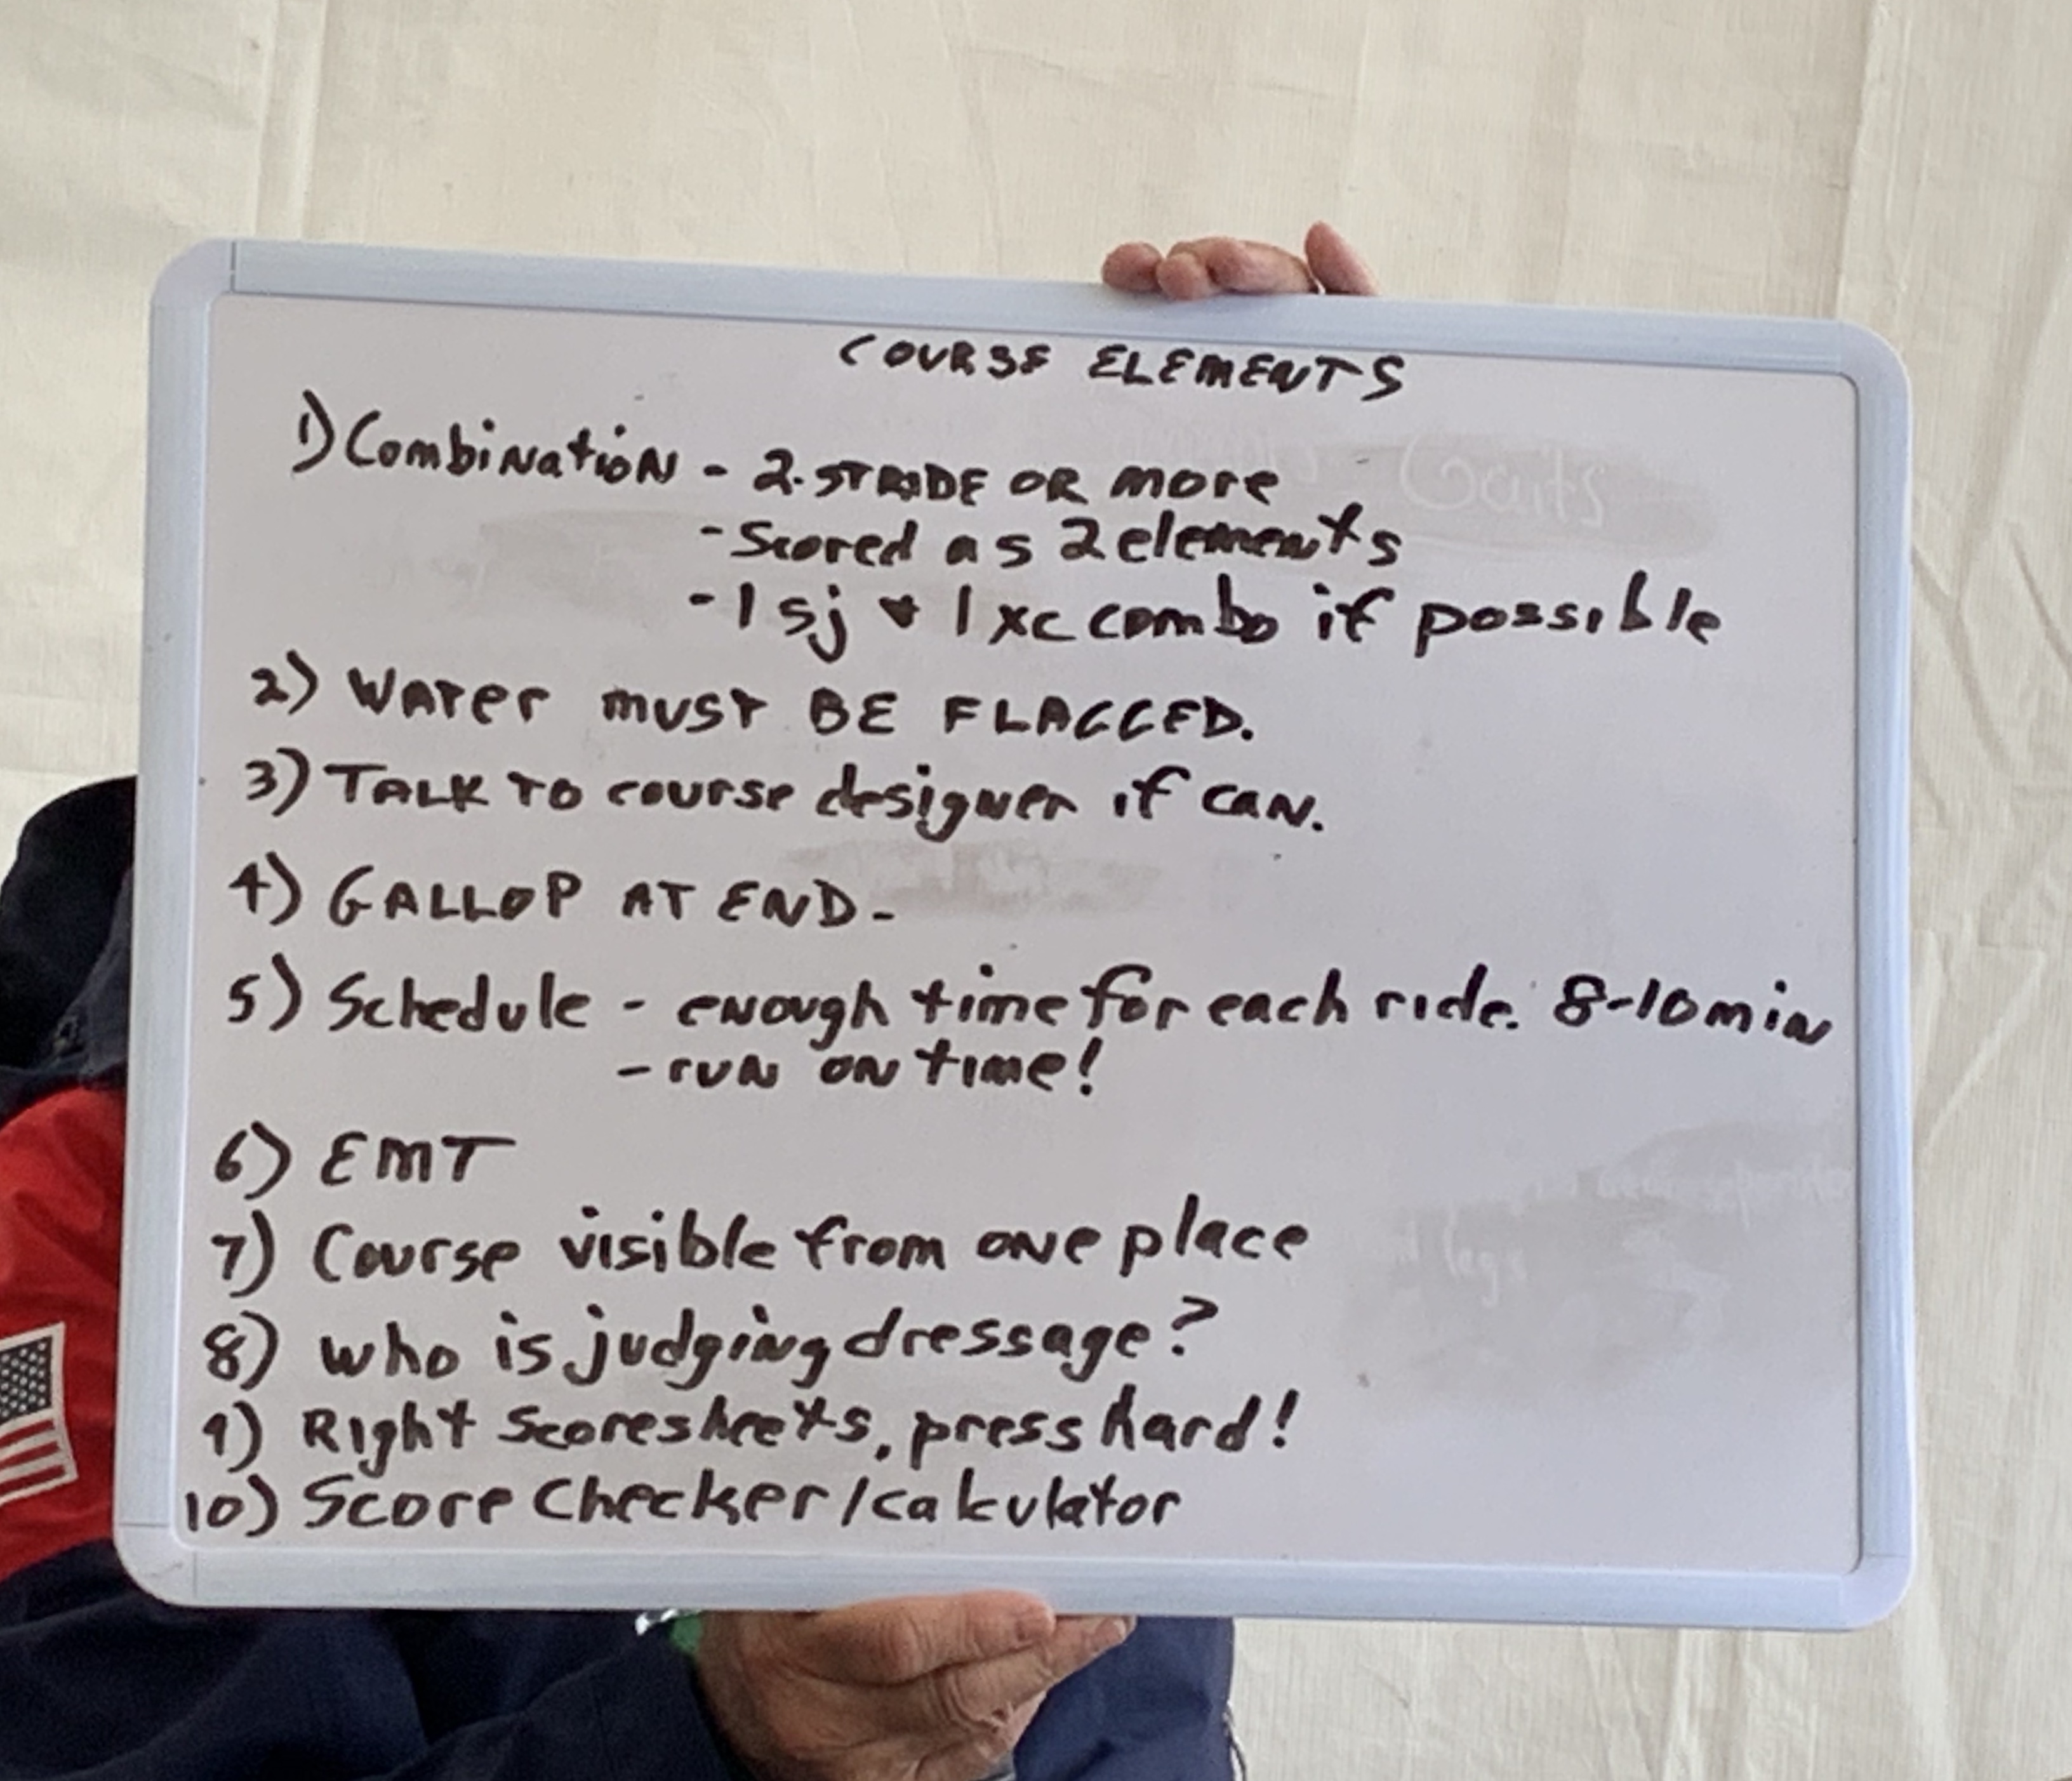 COURSE ELEMENTS
1) Combination - 2-STRIDE OR more
- Scored as 2 elements
- 1 sj + 1 xc combo if possible
2) WATER MUST BE FLAGGED.
3) TALK TO course designer if CAN.
4) GALLOP AT END -
5) Schedule - enough time for each ride. 8-10 min
- run on time!
6) EMT
7) Course visible from one place
8) who is judging dressage?
9) Right Scoresheets, press hard!
10) Score Checker/calculator
Gaits
legs